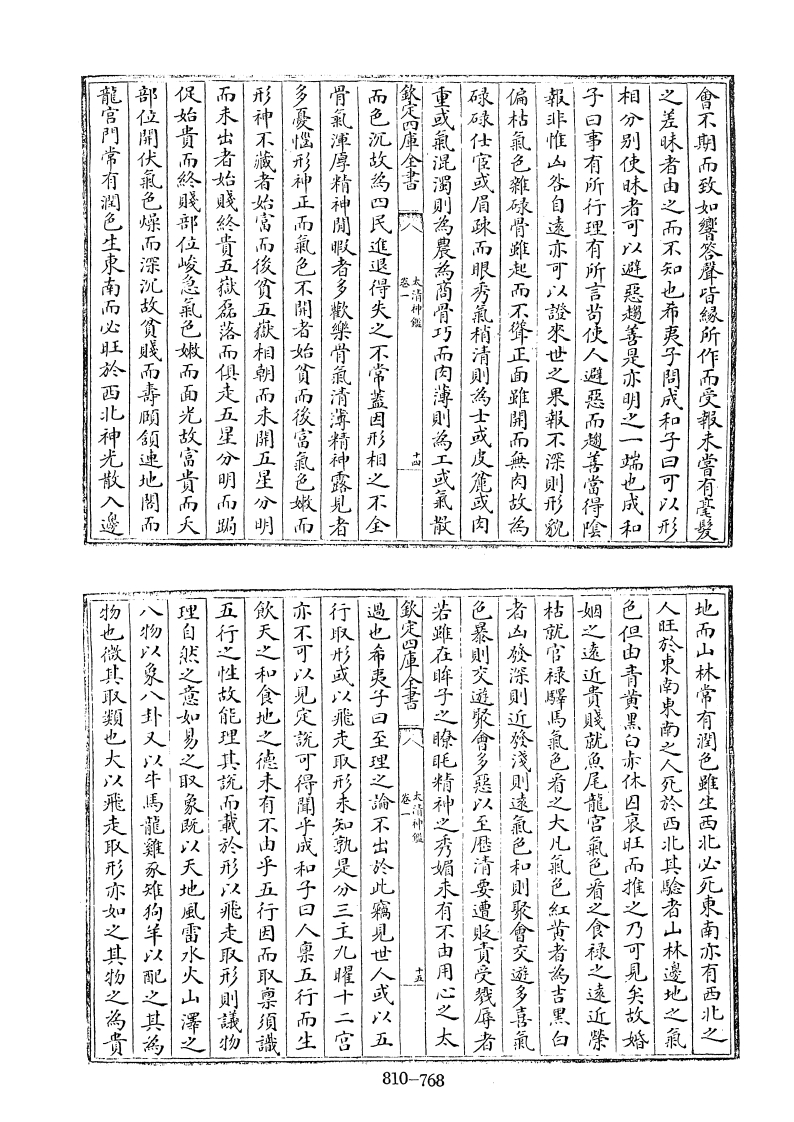 會不期而致如響答聲皆縁所作而受報未嘗有毫髮
之差昧者由之而不知也希夷子問成和子曰可以形
相分别使昧者可以避惡趨善是亦明之一端也成和
子曰事有所行理有所言苟使人避惡而趨善當得隂
報非惟凶咎自遠亦可以證來世之果報不深則形貌
偏枯氣色雜碌骨雖起而不聳正面雖開而無肉故為
碌碌仕宦或眉疎而眼秀氣稍清則為士或皮麄或肉
重或氣混濁則為農為商骨巧而肉薄則為工或氣散
欽定四庫全書
太清神鑑
卷一
十四
而色沉故為四民進退得失之不常蓋因形相之不全
骨氣渾厚精神閒暇者多歡樂骨氣清薄精神露見者
多憂惱形神正而氣色不開者始貧而後富氣色嫩而
形神不藏者始富而後貧五嶽相朝而未開五星分明
而未出者始賤終貴五嶽磊落而俱走五星分明而跼
促始貴而終賤部位峻急氣色嫩而面光故富貴而夭
部位開伏氣色燥而深沉故貧賤而壽頥頷連地閣而
龍宫門常有潤色生東南而必旺於西北神光散入邊
地而山林常有潤色雖生西北必死東南亦有西北之
人旺於東南東南之人死於西北其驗者山林邊地之氣
色但由青黄黑白赤休囚衰旺而推之乃可見矣故婚
姻之遠近貴賤就魚尾龍宫氣色看之食禄之遠近榮
枯就官禄驛馬氣色看之大凡氣色紅黄者為吉黑白
者凶發深則近發淺則遠氣色和則聚會交遊多喜氣
色暴則交遊聚會多惡以至歴清要遭貶責受戮辱者
若雖在眸子之瞭眊精神之秀媚未有不由用心之太
欽定四庫全書
太清神鑑
卷一
十五
過也希夷子曰至理之論不出於此竊見世人或以五
行取形或以飛走取形未知孰是分三主九曜十二宫
亦不可以見定説可得聞乎成和子曰人禀五行而生
飲天之和食地之德未有不由乎五行因而取禀須識
五行之性故能理其説而載於形以飛走取形則議物
理自然之意如易之取象既以天地風雷水火山澤之
八物以象八卦又以牛馬龍雞豕雉狗羊以配之其為
物也微其取類也大以飛走取形亦如之其物之為貴
810-768